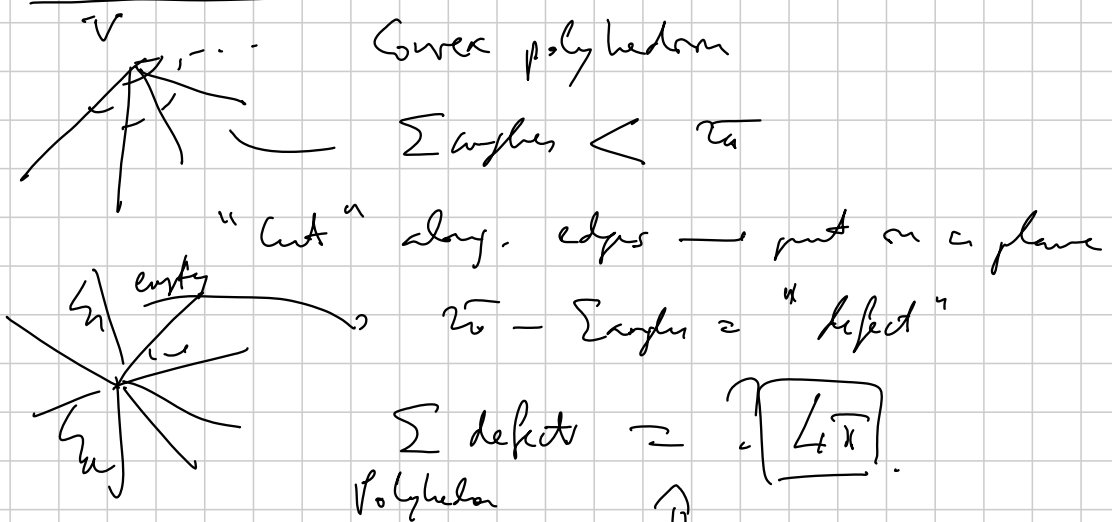 V
Convex polyhedron
Σ angles < 2π
"Cut" along edges — put on a plane
empty
2π - Σ angles = "defect"
Σ defects = ? 4π.
Polyhedron